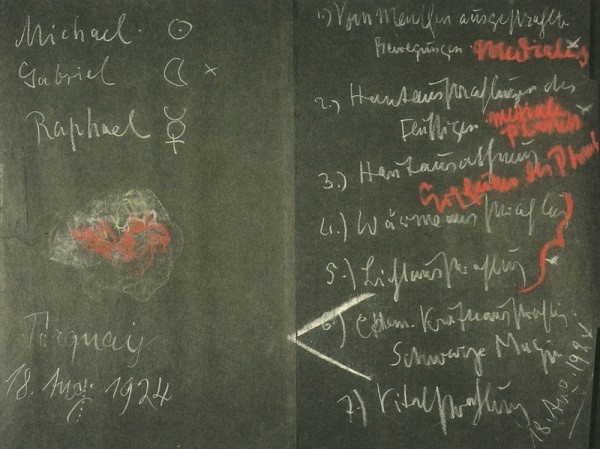 Michael. ☉
Gabriel ☾ ×
Raphael ☿
Torquay
18. Aug. 1924
1.) Vom Menschen ausgestrahlte
Bewegungen. Mediales
2.) Hautausstrahlungen des
Flüssigen. mediale
3.) Hautausathmung
des
4.) Wärmeausstrahlung
5.) Lichtausstrahlung
6.) Chem. Kraftausstrahlg.
Schwarze Magie
7.) Vitalstrahlung
18. Aug. 1924